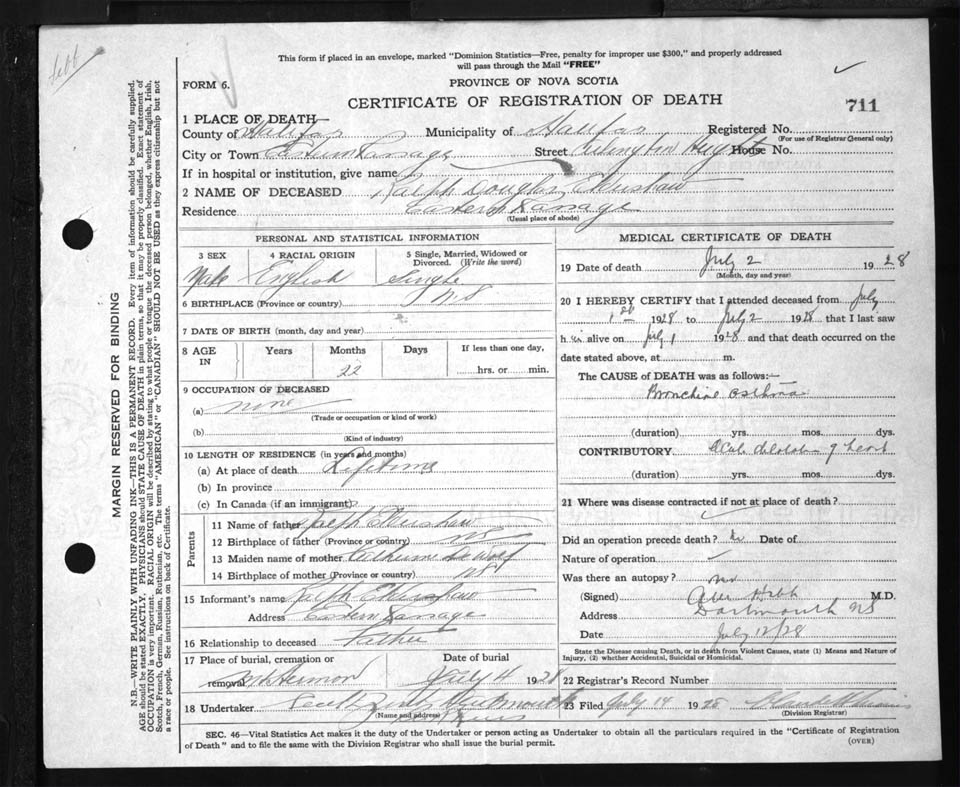 This form if placed in an envelope, marked "Dominion Statistics—Free, penalty for improper use $300," and properly addressed
will pass through the Mail "FREE"
FORM 6.
PROVINCE OF NOVA SCOTIA
CERTIFICATE OF REGISTRATION OF DEATH
711
1 PLACE OF DEATH—
County of Halifax Municipality of Halifax Registered No.
(For use of Registrar General only)
City or Town Eastern Passage Street House No.
If in hospital or institution, give name
2 NAME OF DECEASED Ralph Douglas
Residence Eastern Passage
(Usual place of abode)
PERSONAL AND STATISTICAL INFORMATION
3 SEX 4 RACIAL ORIGIN 5 Single, Married, Widowed or
Divorced. (Write the word)
Male English Single
6 BIRTHPLACE (Province or country) N.S
7 DATE OF BIRTH (month, day and year)
8 AGE IN Years Months Days If less than one day,
22 hrs. or min.
9 OCCUPATION OF DECEASED
(a) none
(Trade or occupation or kind of work)
(b)
(Kind of industry)
10 LENGTH OF RESIDENCE (in years and months)
(a) At place of death Lifetime
(b) In province
(c) In Canada (if an immigrant)
Parents
11 Name of father Ralph
12 Birthplace of father (Province or country) NS
13 Maiden name of mother DeWolf
14 Birthplace of mother (Province or country) NS
15 Informant's name Ralph
Address Eastern Passage
16 Relationship to deceased Father
17 Place of burial, cremation or Date of burial
removal Mt Hermon July 4 1928
18 Undertaker
(Name and address)
MEDICAL CERTIFICATE OF DEATH
19 Date of death July 2 1928
(Month, day and year)
20 I HEREBY CERTIFY that I attended deceased from July
1928 to July 2 1928 that I last saw
him alive on July 1 1928 and that death occurred on the
date stated above, at m.
The CAUSE of DEATH was as follows:—
Bronchial asthma
(duration) yrs. mos. dys.
CONTRIBUTORY Acute dilatation of heart
(duration) yrs. mos. dys.
21 Where was disease contracted if not at place of death?
Did an operation precede death? No Date of
Nature of operation
Was there an autopsy? no
(Signed) M.D.
Address Dartmouth NS
Date July 12/28
State the Disease Causing Death, or in death from Violent Causes, state (1) Means and Nature of
Injury, (2) whether Accidental, Suicidal or Homicidal.
22 Registrar's Record Number
23 Filed July 14 1928
(Division Registrar)
SEC. 46—Vital Statistics Act makes it the duty of the Undertaker or person acting as Undertaker to obtain all the particulars required in the "Certificate of Registration
of Death" and to file the same with the Division Registrar who shall issue the burial permit.
(OVER)
MARGIN RESERVED FOR BINDING
N.B.—WRITE PLAINLY WITH UNFADING INK—THIS IS A PERMANENT RECORD. Every item of information should be carefully supplied
AGE should be stated EXACTLY. PHYSICIANS should STATE CAUSE OF DEATH in plain terms, so that it may be properly classified. Exact statement of
OCCUPATION is very important. RACIAL ORIGIN will be described by stating to what people or tongue the deceased person belonged, whether English, Irish,
Scotch, French, German, Russian, Ruthenian, etc. The terms "AMERICAN" or "CANADIAN" SHOULD NOT BE USED as they express citizenship but not
a race or people. See instructions on back of Certificate.